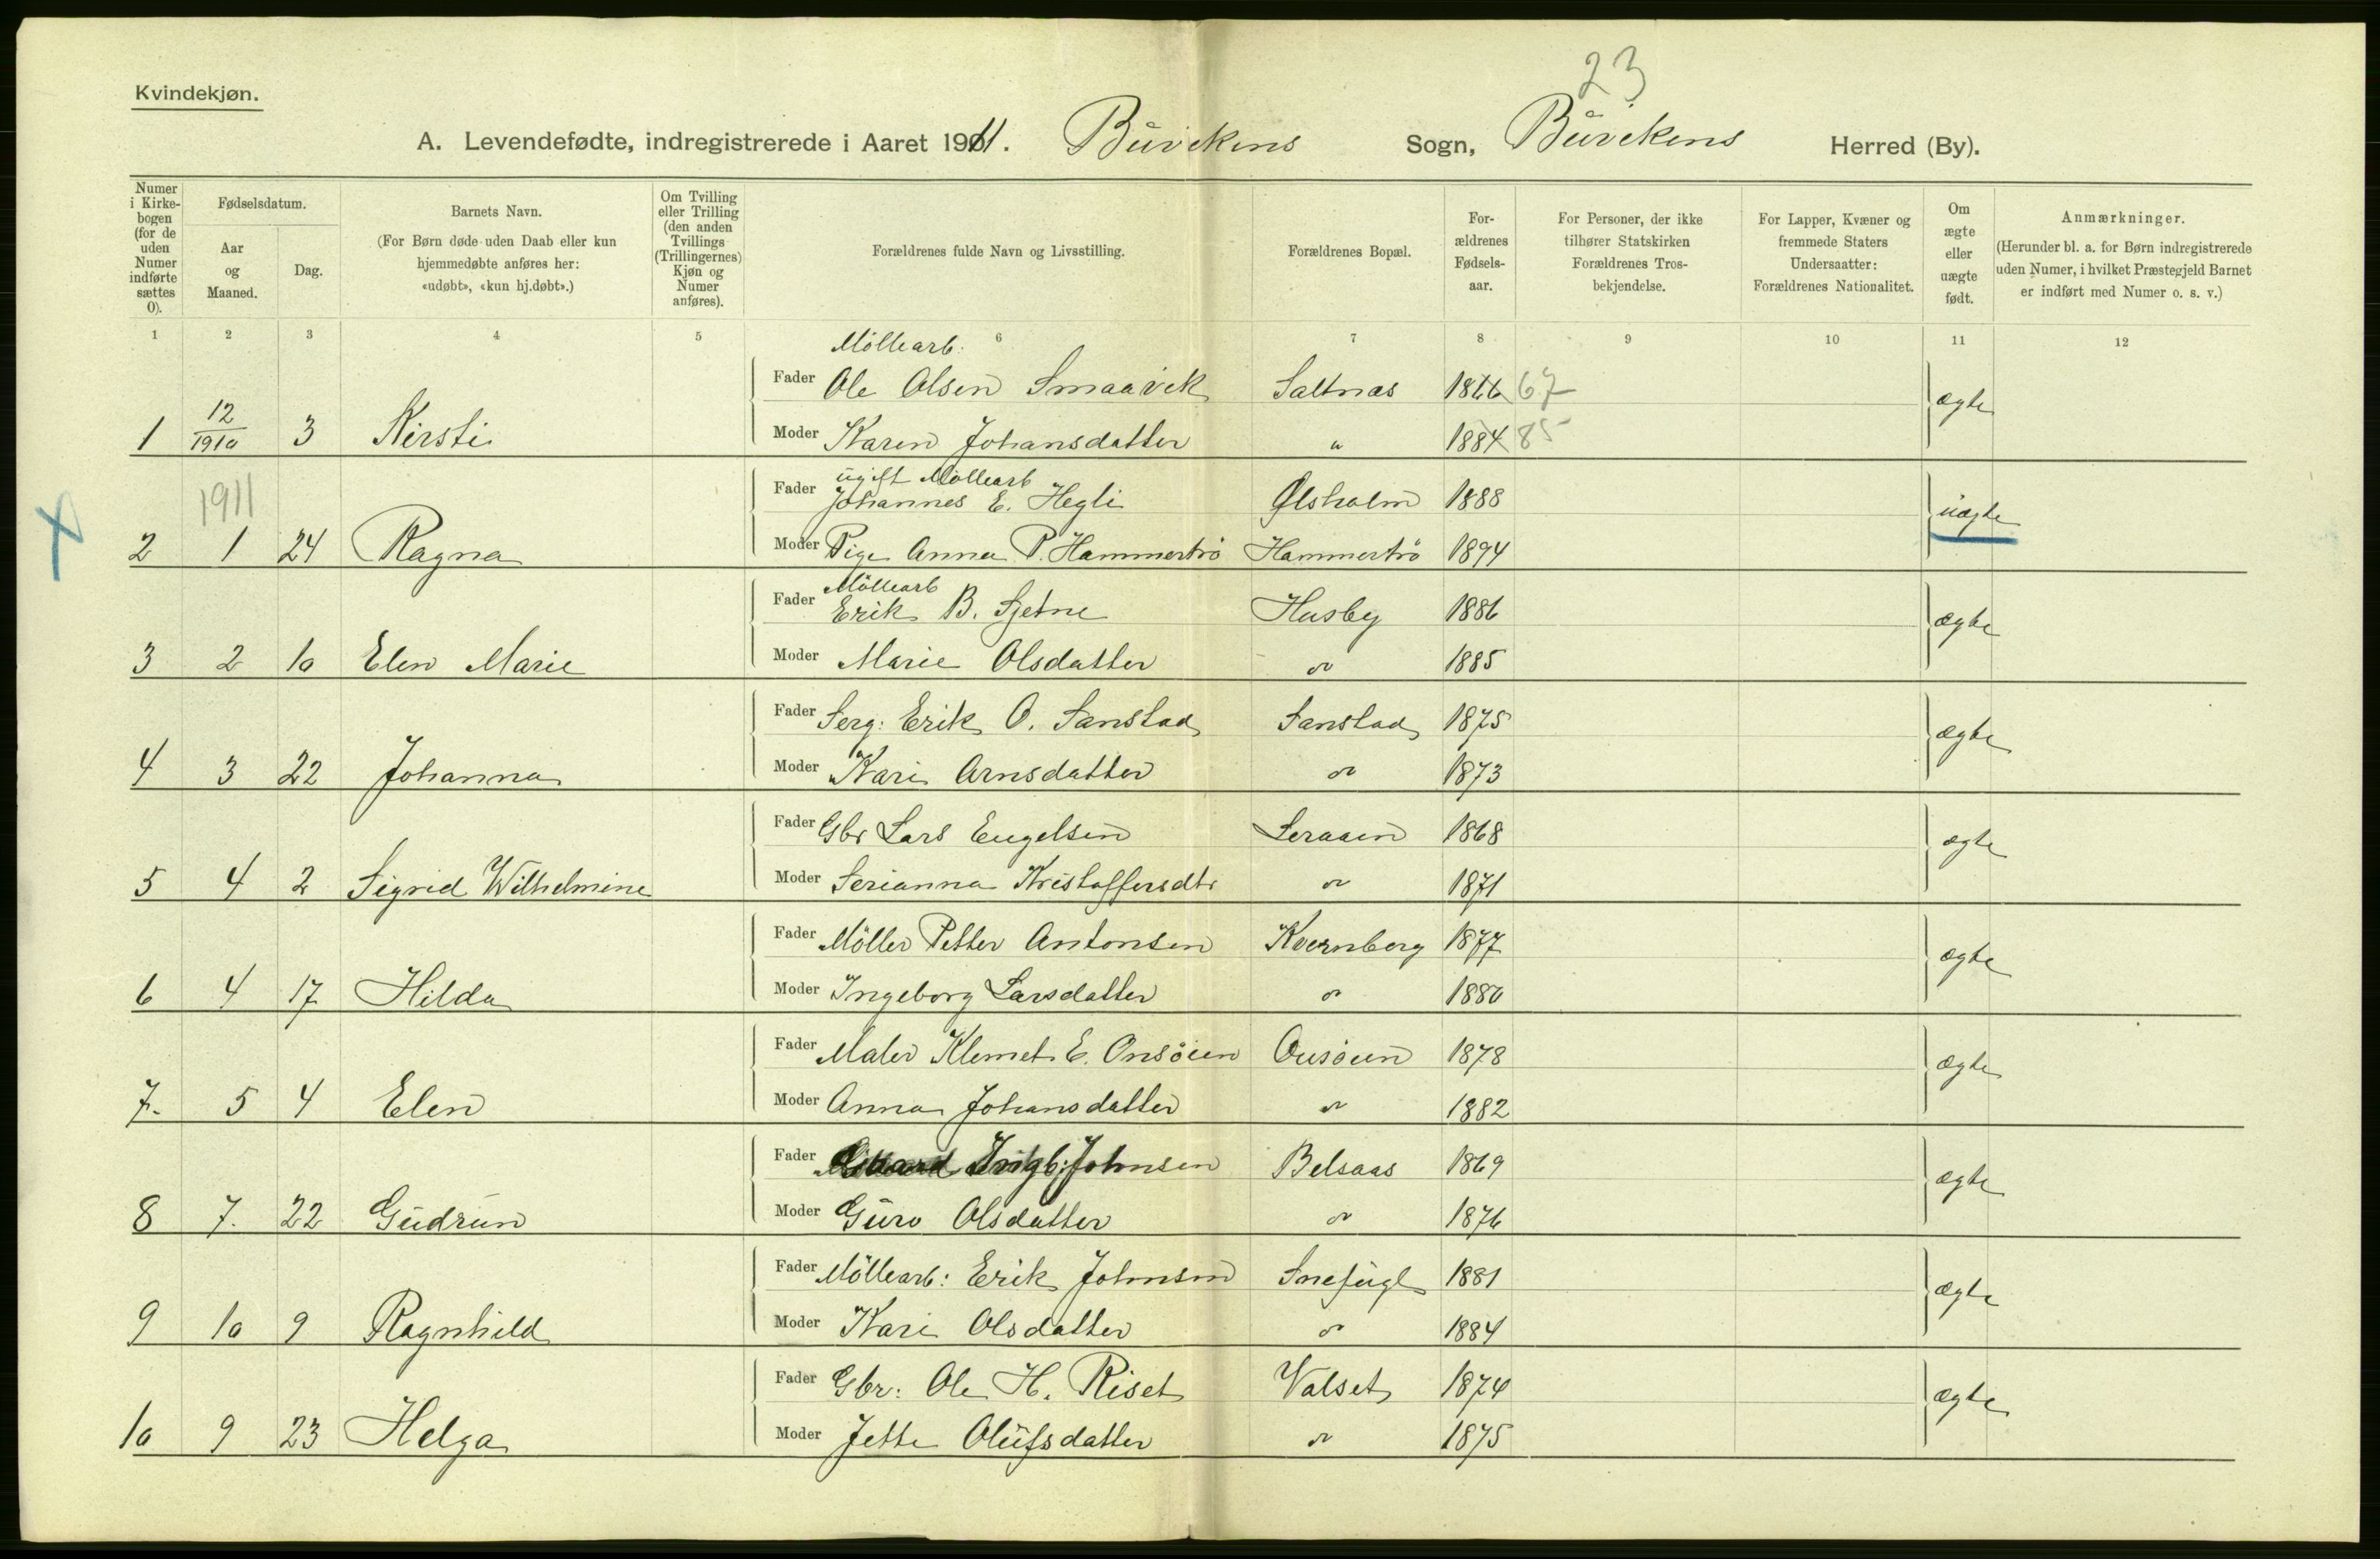 23
Kvindekjøn.
A. Levendefødte, indregistrerede i Aaret 1911. Buvikens Sogn, Buvikens Herred (By).
Numer i Kirkebogen (for de uden Numer indførte sættes 0).
Fødselsdatum.
Aar og Maaned.
Dag.
Barnets Navn.
(For Børn døde uden Daab eller kun hjemmedøbte anføres her: «udøbt», «kun hj.døbt».)
Om Tvilling eller Trilling (den anden Tvillings (Trillingernes) Kjøn og Numer anføres).
Forældrenes fulde Navn og Livsstilling.
Forældrenes Bopæl.
Forældrenes Fødselsaar.
For Personer, der ikke tilhører Statskirken Forældrenes Trosbekjendelse.
For Lapper, Kvæner og fremmede Staters Undersaatter: Forældrenes Nationalitet.
Om ægte eller uægte født.
Anmærkninger.
(Herunder bl. a. for Børn indregistrerede uden Numer, i hvilket Præstegjeld Barnet er indført med Numer o. s. v.)
1 2 3 4 5 6 7 8 9 10 11 12
Möllearb:
Fader Ole Olsen Smaavik Saltnæs 1866 67 ægte
1 12/1910 3 Kirsti Moder Karen Johansdatter " 1884 85
ugift Möllearb
Fader Johannes E. Hegli Ølsholm 1888 uægte
1911
2 1 24 Ragna Moder Pige Anna P. Hammertrö Hammertrö 1894
Möllearb
Fader Erik B. Sjetne Husby 1886 ægte
3 2 10 Elen Marie Moder Marie Olsdatter " 1885
Fader Serg: Erik O. Sanstad Sanstad 1875 ægte
4 3 22 Johanna Moder Kari Arnsdatter " 1873
Fader Gbr Lars Engelsen Leraaen 1868 ægte
5 4 2 Sigrid Wilhelmine Moder Serianna Kristoffersdtr " 1871
Fader Möller Petter Antonsen Kvernberg 1877 ægte
6 4 17 Hilda Moder Ingeborg Larsdatter " 1880
Fader Maler Klemet E. Onsöien Onsöien 1878 ægte
7. 5 4 Elen Moder Anna Johansdatter " 1882
Fader Ingb: Johnsen Belsaas 1869 ægte
8 7. 22 Gudrun Moder Guro Olsdatter " 1876
Fader Möllearb: Erik Johnsen Snefugl 1881 ægte
9 10 9 Ragnhild Moder Kari Olsdatter " 1884
Fader Gbr: Ole H. Riset Valset 1874 ægte
10 9 23 Helga Moder Jette Olufsdatter " 1875